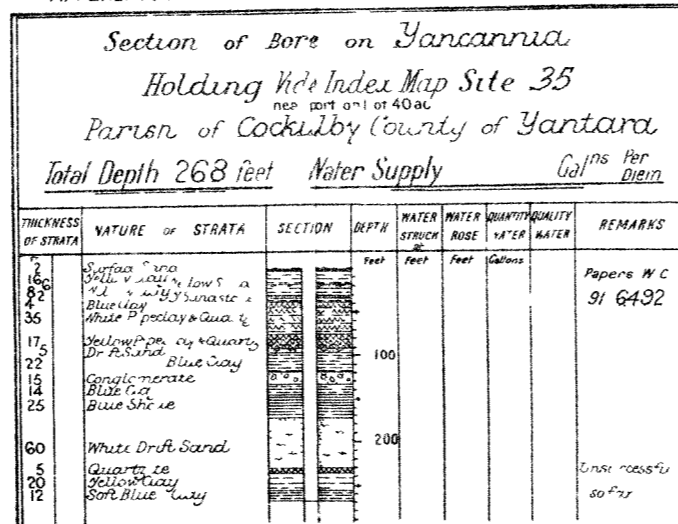 Section of Bore on Yancannia
Holding Vide Index Map Site 35
40 ac
Parish of Cockulby County of Yantara
Total Depth 268 feet Water Supply Galns Per Diem
THICKNESS OF STRATA NATURE OF STRATA SECTION DEPTH WATER STRUCK at WATER ROSE QUANTITY WATER QUALITY WATER REMARKS
Feet Feet Feet Gallons
2 Surface
Papers W C
16
6
8
2
91 6492
4 Blue Clay
35 White Pipeclay & Quartz
17 Yellow Pipeclay & Quartz
5 Drift Sand
100
22 Blue Clay
15 Conglomerate
14 Blue Clay
25 Blue Shale
200
60 White Drift Sand
5 Quartzite
Unsuccessful
20 Yellow Clay
so far
12 Soft Blue Clay